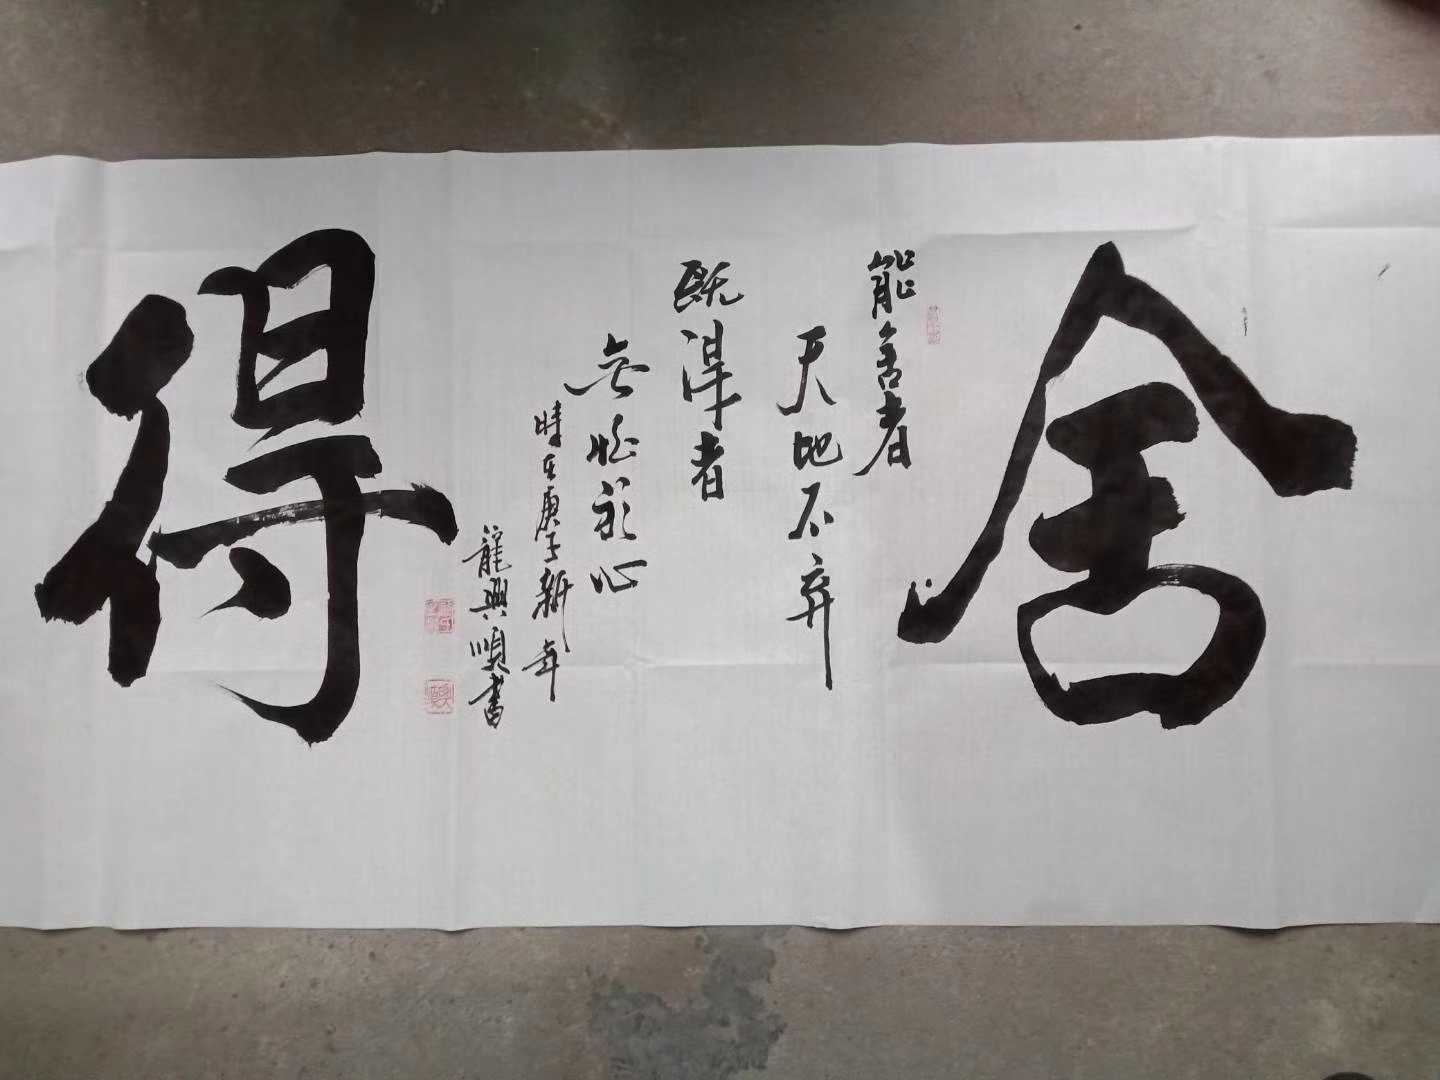 舍
能舍者
天地不弃
既得者
無愧於心
時在庚子新年
龍興順書
得